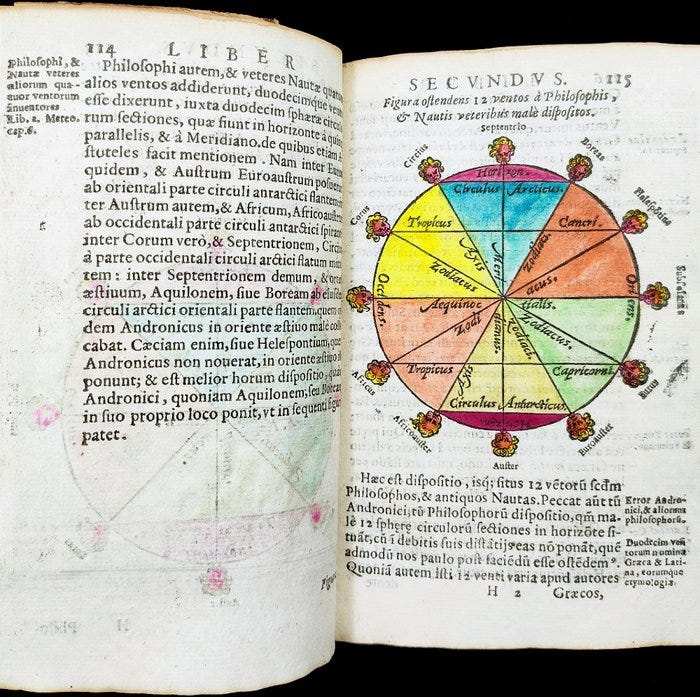 114 LIBER
Philosophi, &
Nautæ veteres
aliorum qua-
tuor ventorum
inuentores
Lib. 2. Meteo.
cap. 6.
Philosophi autem, & veteres Nautæ quatuor
alios ventos addiderunt, duodecimque ventos
esse dixerunt, iuxta duodecim sphæræ circulo
rum sectiones, quæ fiunt in horizonte à
parallelis, & à Meridiano. de quibus etiam
stoteles facit mentionem. Nam inter Eurum
quidem, & Austrum Euroaustrum posuerunt
ab orientali parte circuli antarctici flantem:
ter Austrum autem, & Africum, Africoaustrum
ab occidentali parte circuli antarctici
inter Corum verò, & Septentrionem, Circium
à parte occidentali circuli arctici flatum
tem: inter Septentrionem demum, & ortum
æstiuum, Aquilonem, siue Boream ab eiusdem
circuli arctici orientali parte flantem, quem
dem Andronicus in oriente æstiuo male collo
cabat. Cæciam enim, siue Helespontium, quem
Andronicus non nouerat, in oriente æstiuo
ponunt; & est melior horum dispositio, quàm
Andronici, quoniam Aquilonem, seu Boream
in suo proprio loco ponit, vt in sequenti figura
patet.
SECVNDVS. 115
Figura ostendens 12 ventos à Philosophis,
& Nautis veteribus malè dispositos.
Septentrio
Circius
Boreas
Horizon.
Circulus Arcticus.
Corus
Tropicus
Cancri.
Axis
Zodiacus
Meri
Zodiacus
Occidens.
Oriens.
Subsolanus
Aequinoc
tialis.
Zodi
acus.
dianus.
Zodiaci
Zodiacus.
Africus
Tropicus
Capricorni.
Eurus
Axis
Circulus Antarcticus.
Horizon
Africoauster
Euroauster
Auster
Hæc est dispositio, isq; situs 12 vẽtorũ scđm
Philosophos, & antiquos Nautas. Peccat aũt tũ
Andronici, tũ Philosophorũ dispositio, qm̃ ma-
lè 12 sphęrę circulorũ sectiones in horizõte si-
tuãt, cũ ĩ debitis suis distãtijs eas nõ ponãt, quẽ
admodũ nos paulo post faciẽdũ esse ostẽdemꝰ.
Quoniã autem isti 12 venti varia apud autores
H 2 Græcos,
Error Andro-
nici, & aliorum
philosophorũ.
Duodecim ven
torum nomina
Græca & Lati-
na, eorumque
etymologiæ.